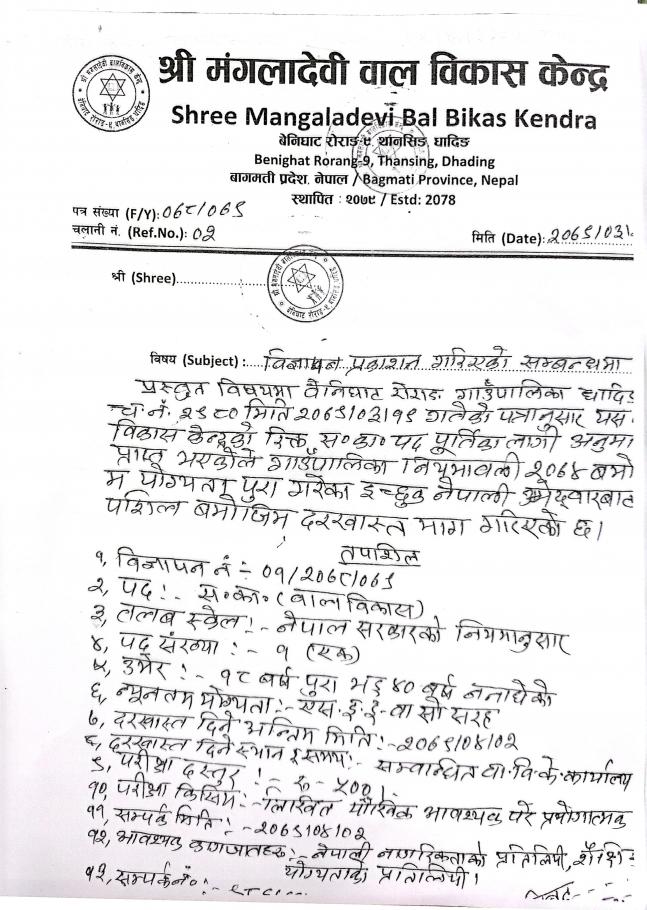 श्री मंगलादेवी वाल विकास केन्द्र
Shree Mangaladevi Bal Bikas Kendra
बेनिघाट रोराङ-९, थानसिङ, धादिङ
Benighat Rorang-9, Thansing, Dhading
बागमती प्रदेश, नेपाल / Bagmati Province, Nepal
स्थापित : २०७८ / Estd: 2078
पत्र संख्या (F/Y): ०७८/०७९
चलानी नं. (Ref.No.): ०२
मिति (Date): २०७९/०३/
श्री (Shree)
विषय (Subject) : विज्ञापन प्रकाशन गरिएको सम्बन्धमा
प्रस्तुत विषयमा वेनिघाट रोराङ गाउँपालिका धादिङ
च.नं. २९८० मिति २०७९/०३/१९ गतेको पत्रानुसार यस
विकास केन्द्रको रिक्त स॰का॰ पद पूर्तिका लागी अनुम
प्राप्त भएकोले गाउँपालिका नियमावली २०७४ बमो
म योग्यता पुरा गरेका इच्छुक नेपाली उमेद्वारबाट
तपशिल बमोजिम दरखास्त माग गरिएको छ।
तपशिल
१, विज्ञापन नं :- ०१/२०७८/०७९
२, पद :- स॰का॰ (वाल विकास)
३, तलब स्केल :- नेपाल सरकारको नियमानुसार
४, पद संख्या :- १ (एक)
५, उमेर :- १८ बर्ष पुरा भइ ४० बर्ष ननाघेको
६, न्यूनतम योग्यता :- एस.इ.इ. वा सो सरह
७, दरखास्त दिने अन्तिम मिति :- २०७९/०४/०२
८, दरखास्त दिने स्थान र समय :- सम्बन्धित वा.वि.के. कार्यालय
९, परीक्षा दस्तुर :- रु- ५००।
१०, परीक्षा किसिम :- लिखित मौखिक आवश्यक परे प्रयोगात्मक
११, सम्पर्क मिति :- २०७९/०४/०२
१२, आवश्यक कागजातहरु :- नेपाली नागरिकताको प्रतिलिपी, शैक्षि
योग्यताका प्रतिलिपी।
१३, सम्पर्क नं॰ :-